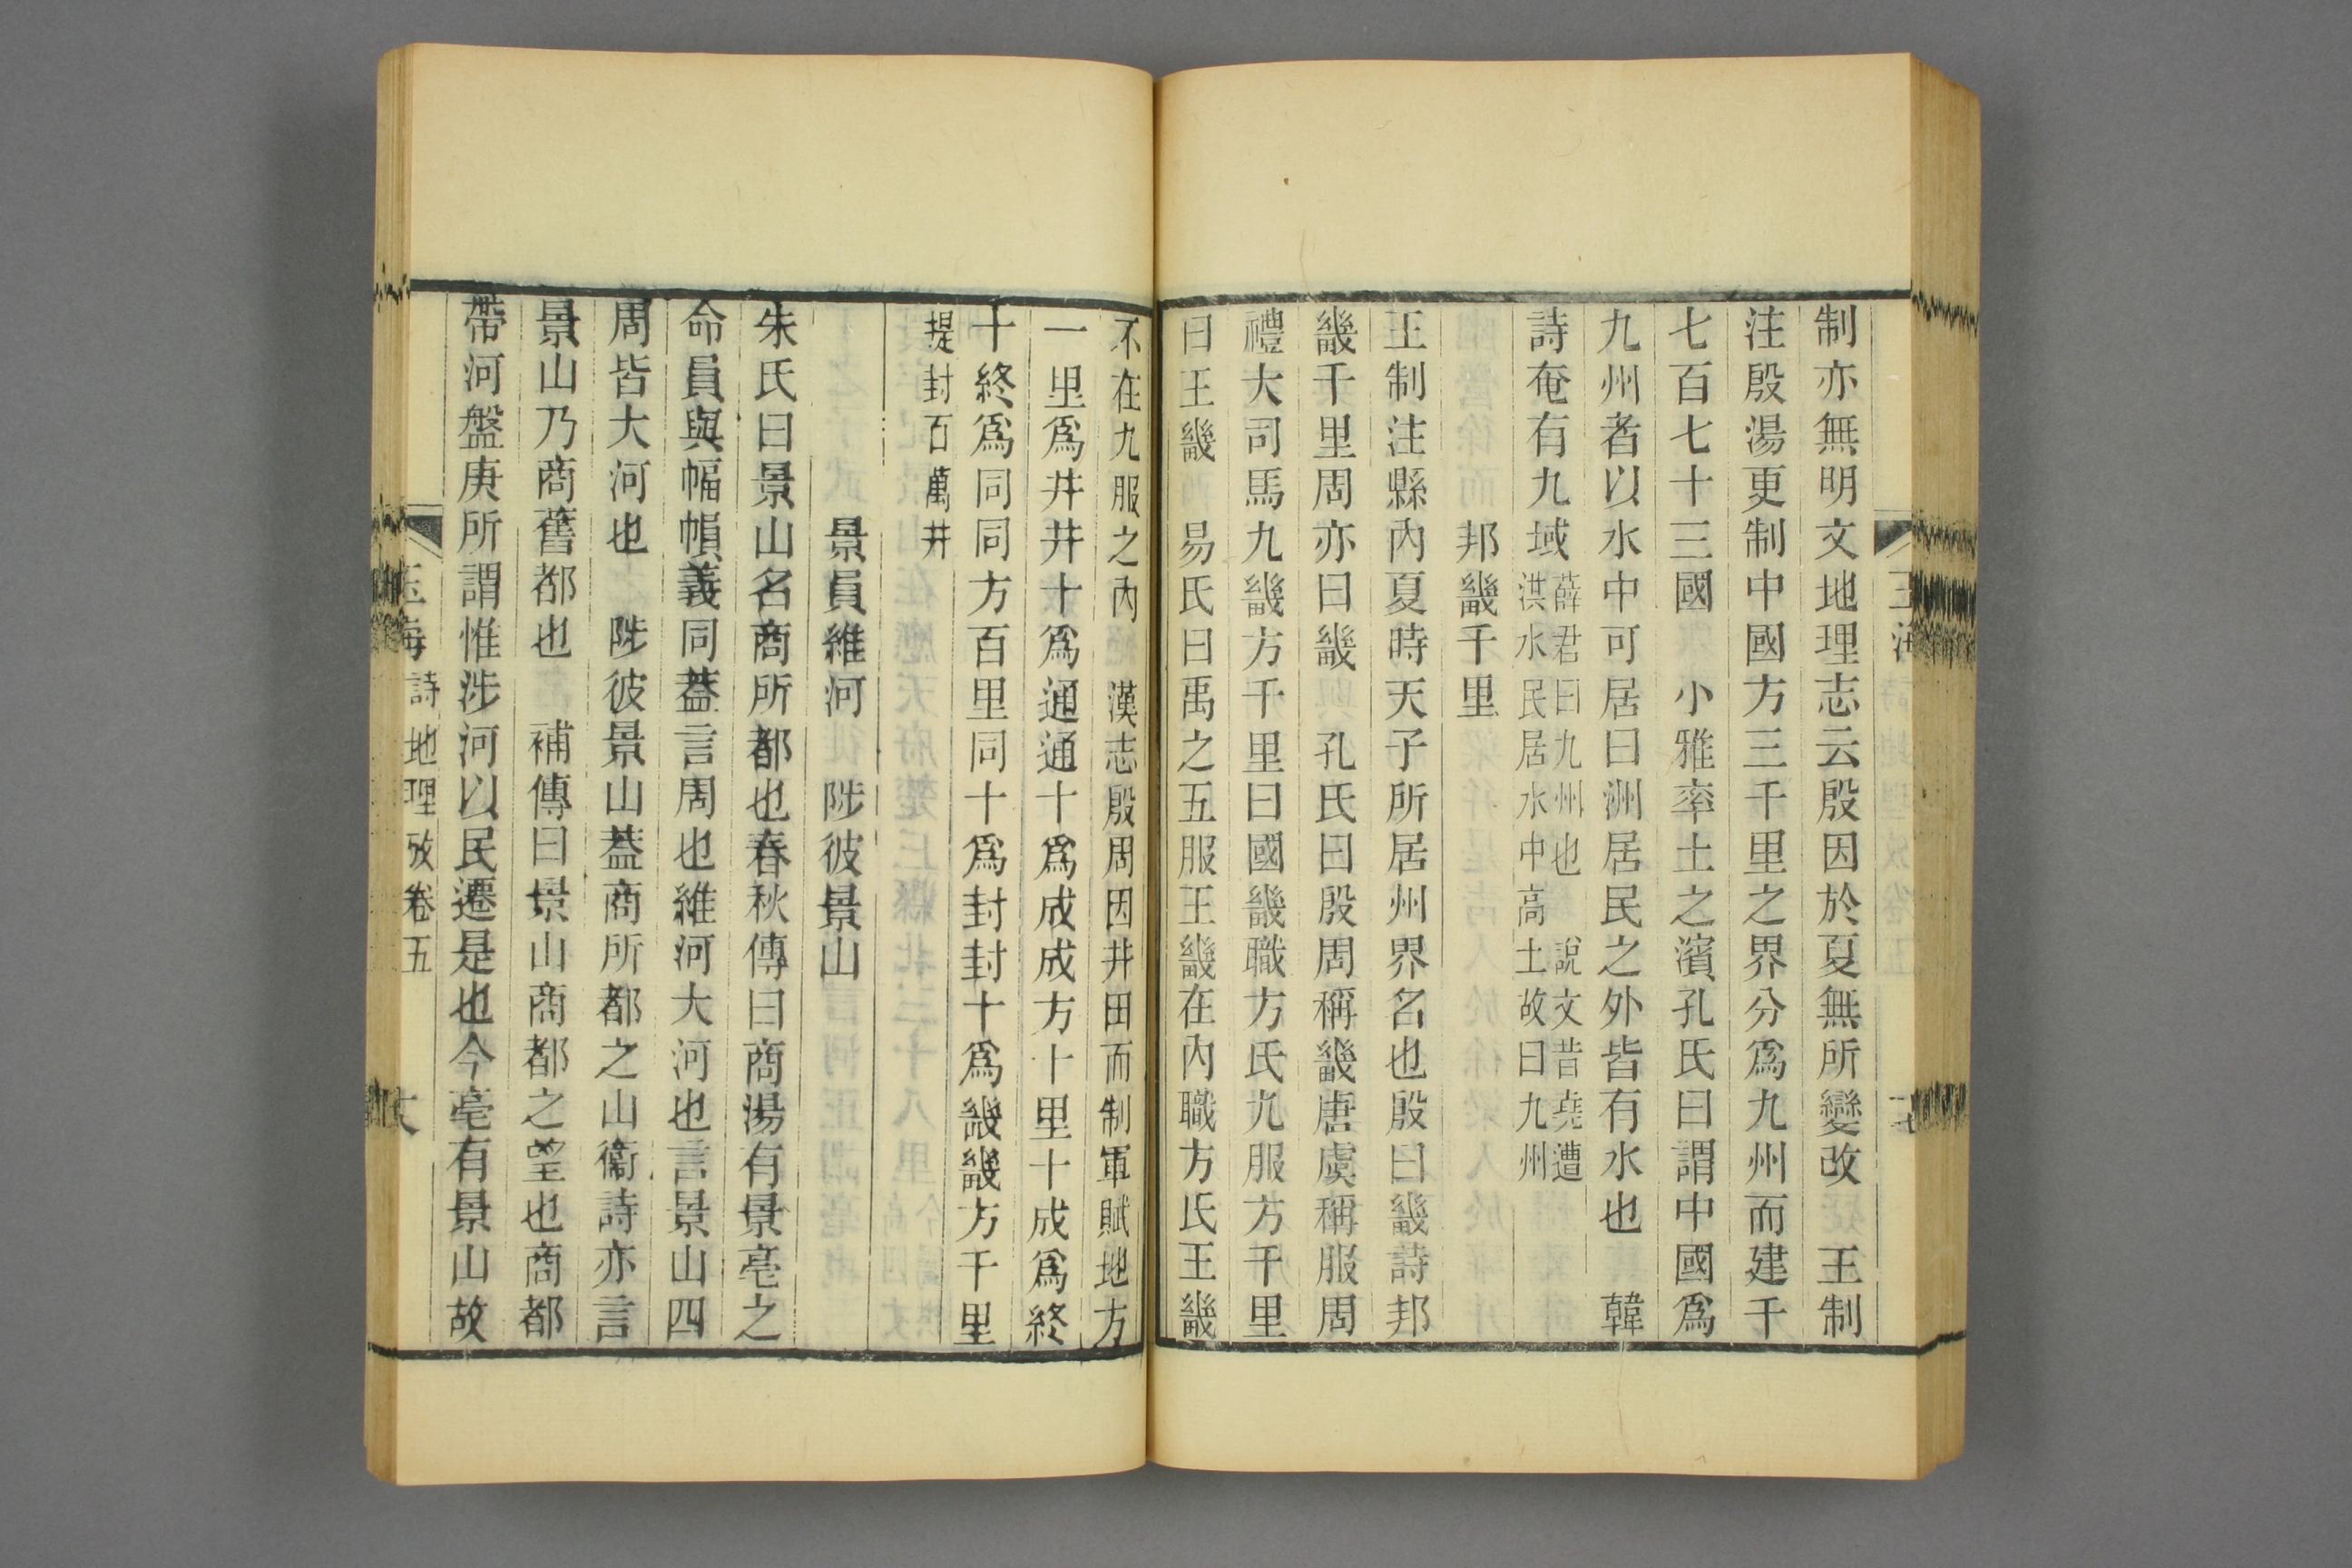 制亦無明文地理志云殷因於夏無所變改　王制
注殷湯更制中國方三千里之界分爲九州而建千
七百七十三國　小雅率土之濱孔氏曰謂中國爲
九州者以水中可居曰洲居民之外皆有水也　韓
詩奄有九域薛君曰九州也　說文昔堯遭
洪水民居水中高土故曰九州
邦畿千里
王制注縣內夏時天子所居州界名也殷曰畿詩邦
畿千里周亦曰畿　孔氏曰殷周稱畿唐虞稱服周
禮大司馬九畿方千里曰國畿職方氏九服方千里
曰王畿　易氏曰禹之五服王畿在內職方氏王畿
不在九服之內　漢志殷周因井田而制軍賦地方
一里爲井井十爲通通十爲成成方十里十成爲終
十終爲同同方百里同十爲封封十爲畿畿方千里
提封百萬井
景員維河　陟彼景山
朱氏曰景山名商所都也春秋傳曰商湯有景亳之
命員與幅幀義同蓋言周也維河大河也言景山四
周皆大河也　陟彼景山蓋商所都之山衞詩亦言
景山乃商舊都也　補傳曰景山商都之望也商都
帶河盤庚所謂惟涉河以民遷是也今亳有景山故
玉海　詩地理攷卷五